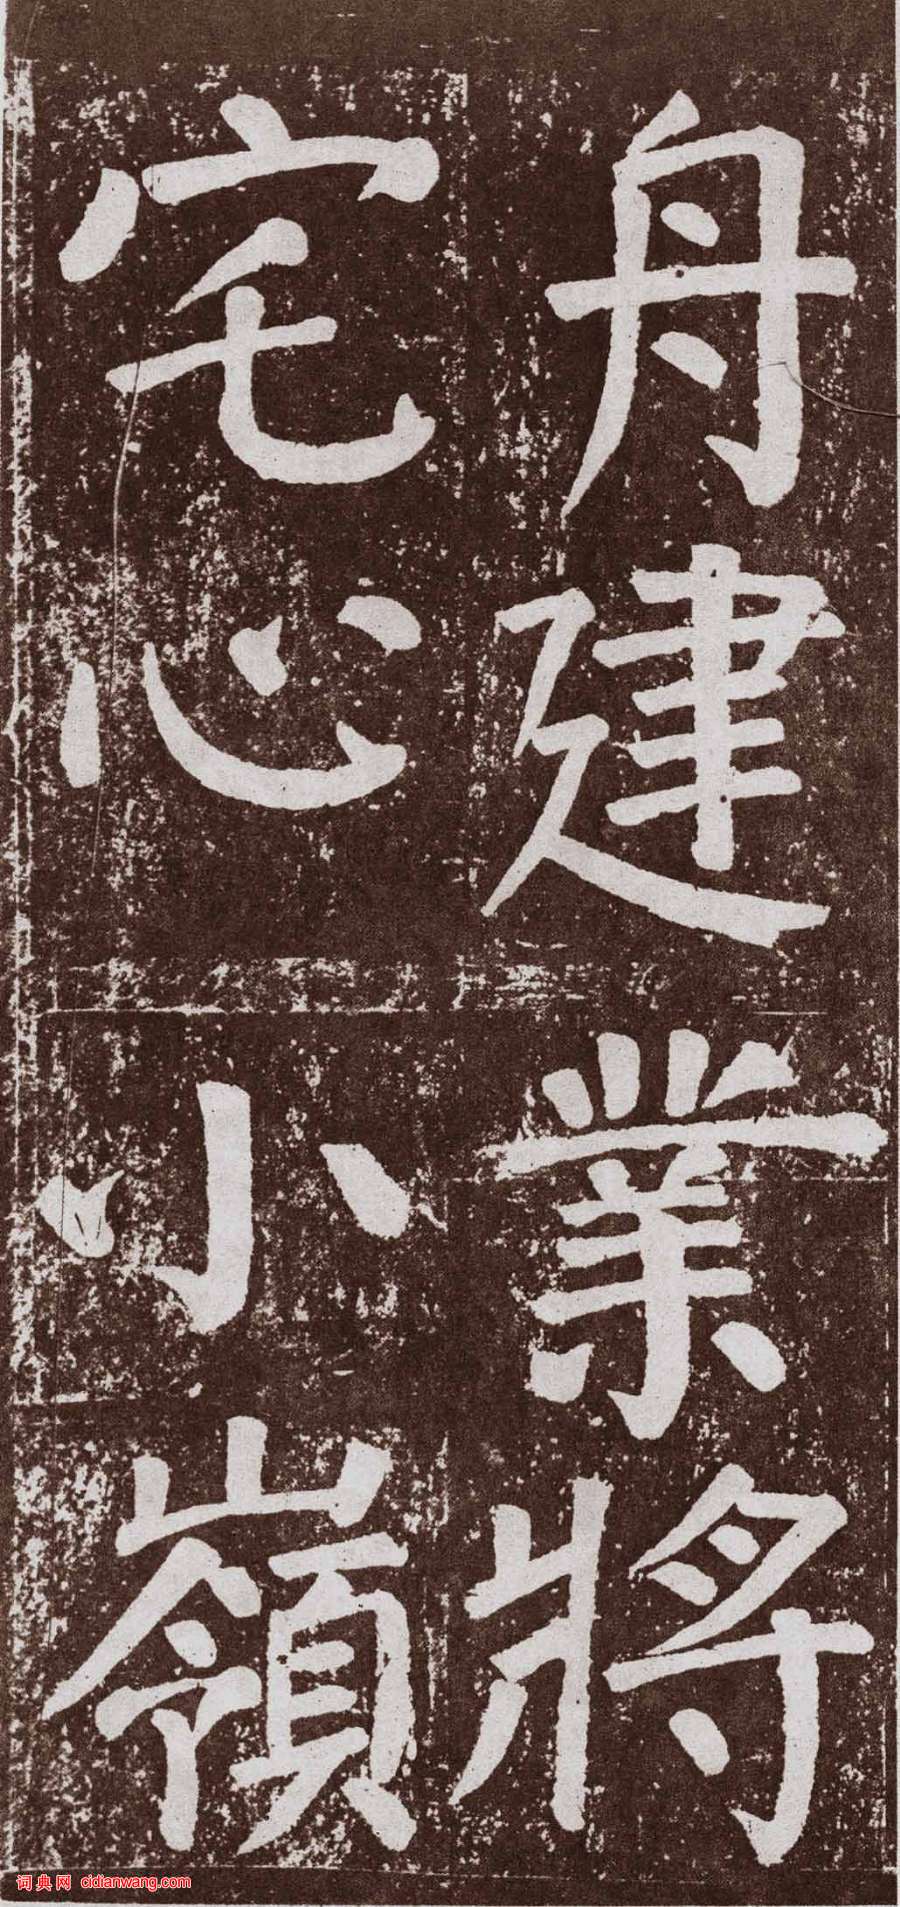 舟建業將
宅心小嶺
词典网 cidianwang.com